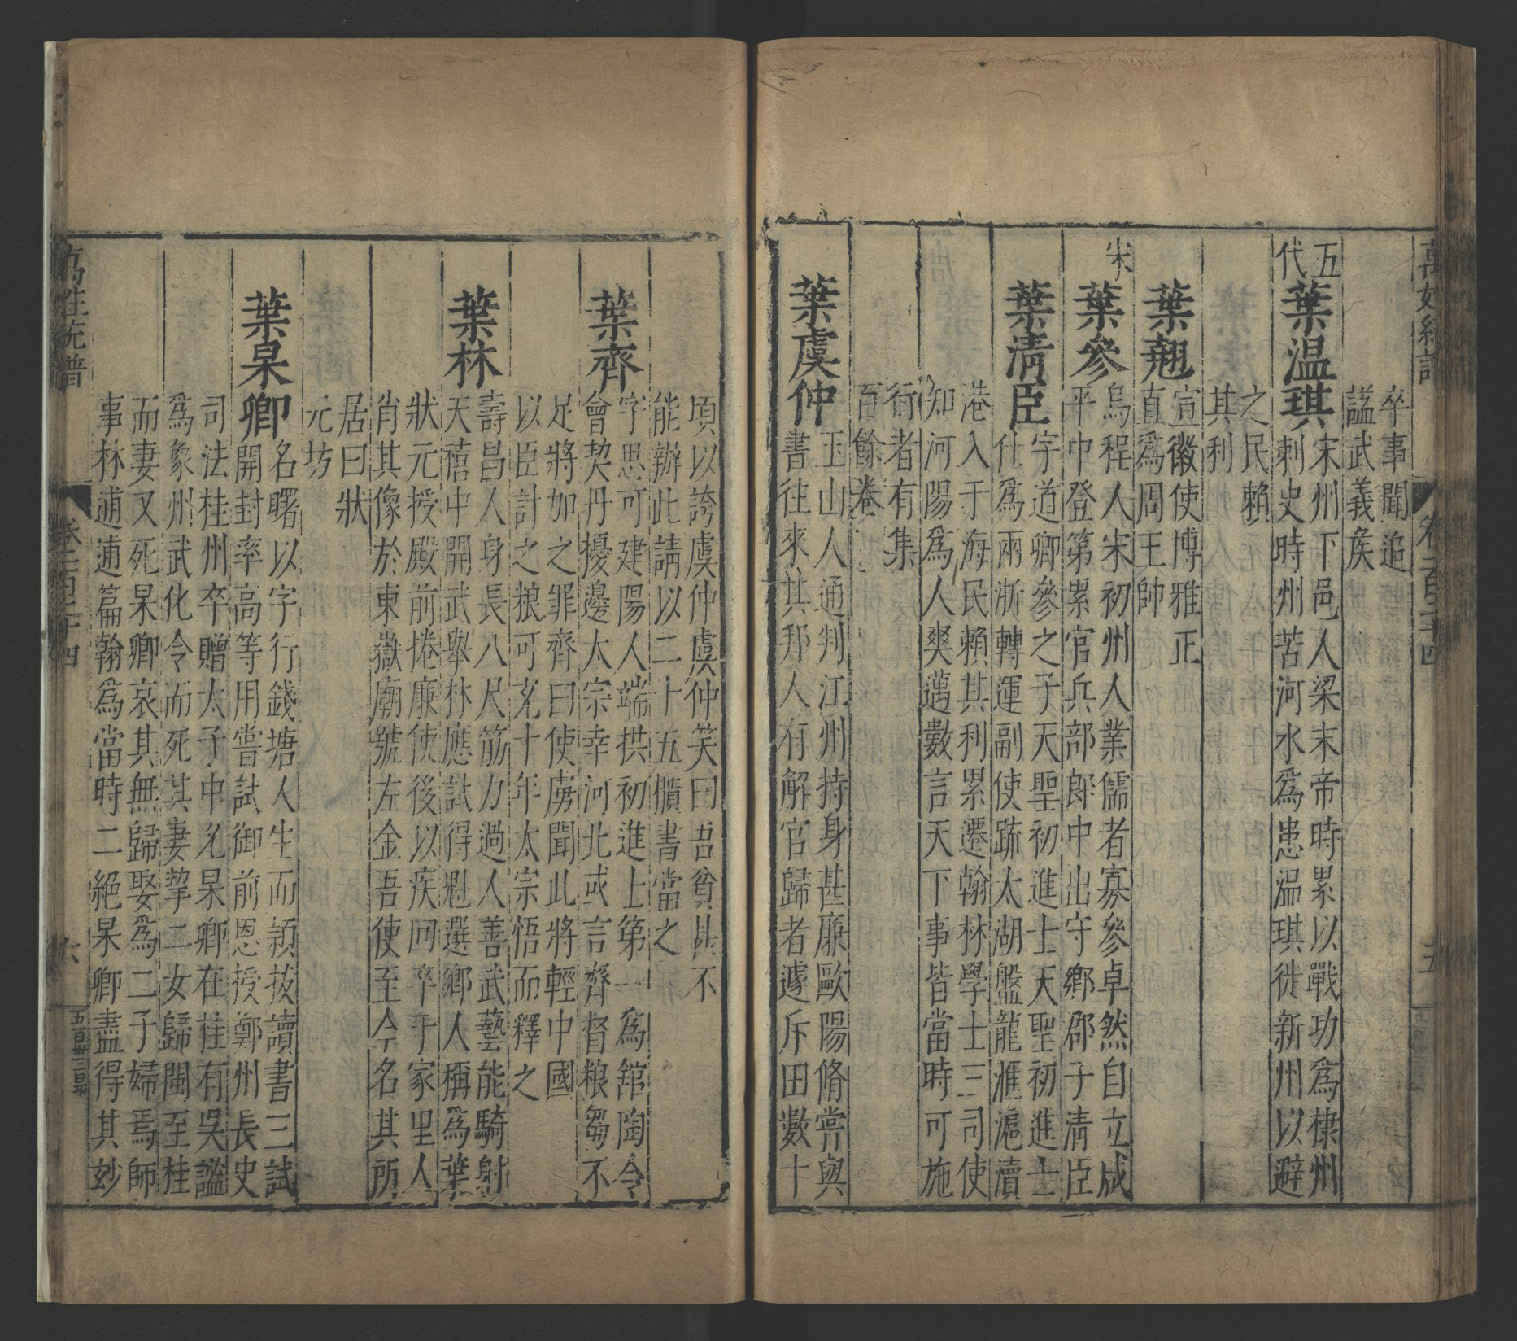 萬姓統譜 卷一百二十四 五
卒事聞追
諡武義侯
五代 葉温琪 宋州下邑人梁末帝時累以戰功爲棣州
刺史時州苦河水爲患温琪徙新州以避
之民賴
其利
葉翹 宣徽使博雅正
直爲周王帥
宋 葉參 烏程人宋初州人業儒者寡參卓然自立咸
平中登第累官兵部郎中出守鄉郡子清臣
葉清臣 字道卿參之子天聖初進士天聖初進士
仕爲兩浙轉運副使疏太湖盤龍滙滬瀆
港入于海民賴其利累遷翰林學士三司使
知河陽爲人爽邁數言天下事皆當時可施
行者有集
百餘卷
葉虞仲 玉山人通判江州持身甚廉歐陽脩嘗與
書往來其邦人有解官歸者遽斥田數十
頃以誇虞仲虞仲笑曰吾貧甚不
能辦此請以二十五櫃書當之
葉齊 字思可建陽人端拱初進士第一爲舘陶令
會契丹擾邊太宗幸河北或言齊督粮芻不
足將加之罪齊曰使虜聞此將輕中國
以臣計之粮可支十年太宗悟而釋之
葉林 壽昌人身長八尺筋力過人善武藝能騎射
天禧中開武舉林應試得魁選鄉人稱爲葉
狀元授殿前捲廉使後以疾回卒于家里人
肖其像於東嶽廟號左金吾使至今名其所
居曰狀
元坊
葉杲卿 名曙以字行錢塘人生而穎拔讀書三試
開封率高等用嘗試御前恩授鄭州長史
司法桂州卒贈太子中允杲卿在桂有吳謐
爲象州武化令而死其妻挈二女歸閩至桂
而妻又死杲卿哀其無歸娶爲二子婦焉師
事林逋逋篇翰爲當時二絕杲卿盡得其玅
萬姓統譜 卷一百二十四 六